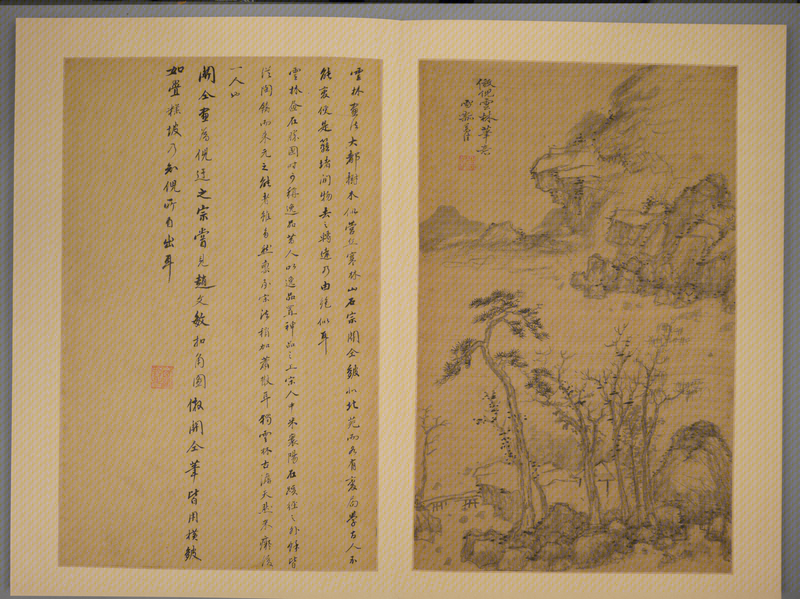 倣倪雲林筆意
雲林畫法大都樹木似營丘寒林山石宗關仝皴似北苑而各有變局學古人不
能變便是籬堵間物去之轉遠乃由絕似耳
雲林在國時可稱逸品昔人以逸品置神品之上宋人中米襄陽在蹊徑之外餘皆
從陶鑄而來元之能者雖多然稟承宋法稍加蕭散耳獨雲林古澹天然米癡後
一人
關仝畫為倪迂之宗嘗見趙文敏扣角圖倣關仝筆皆用橫皴
如疊糕坡乃知倪所自出耳